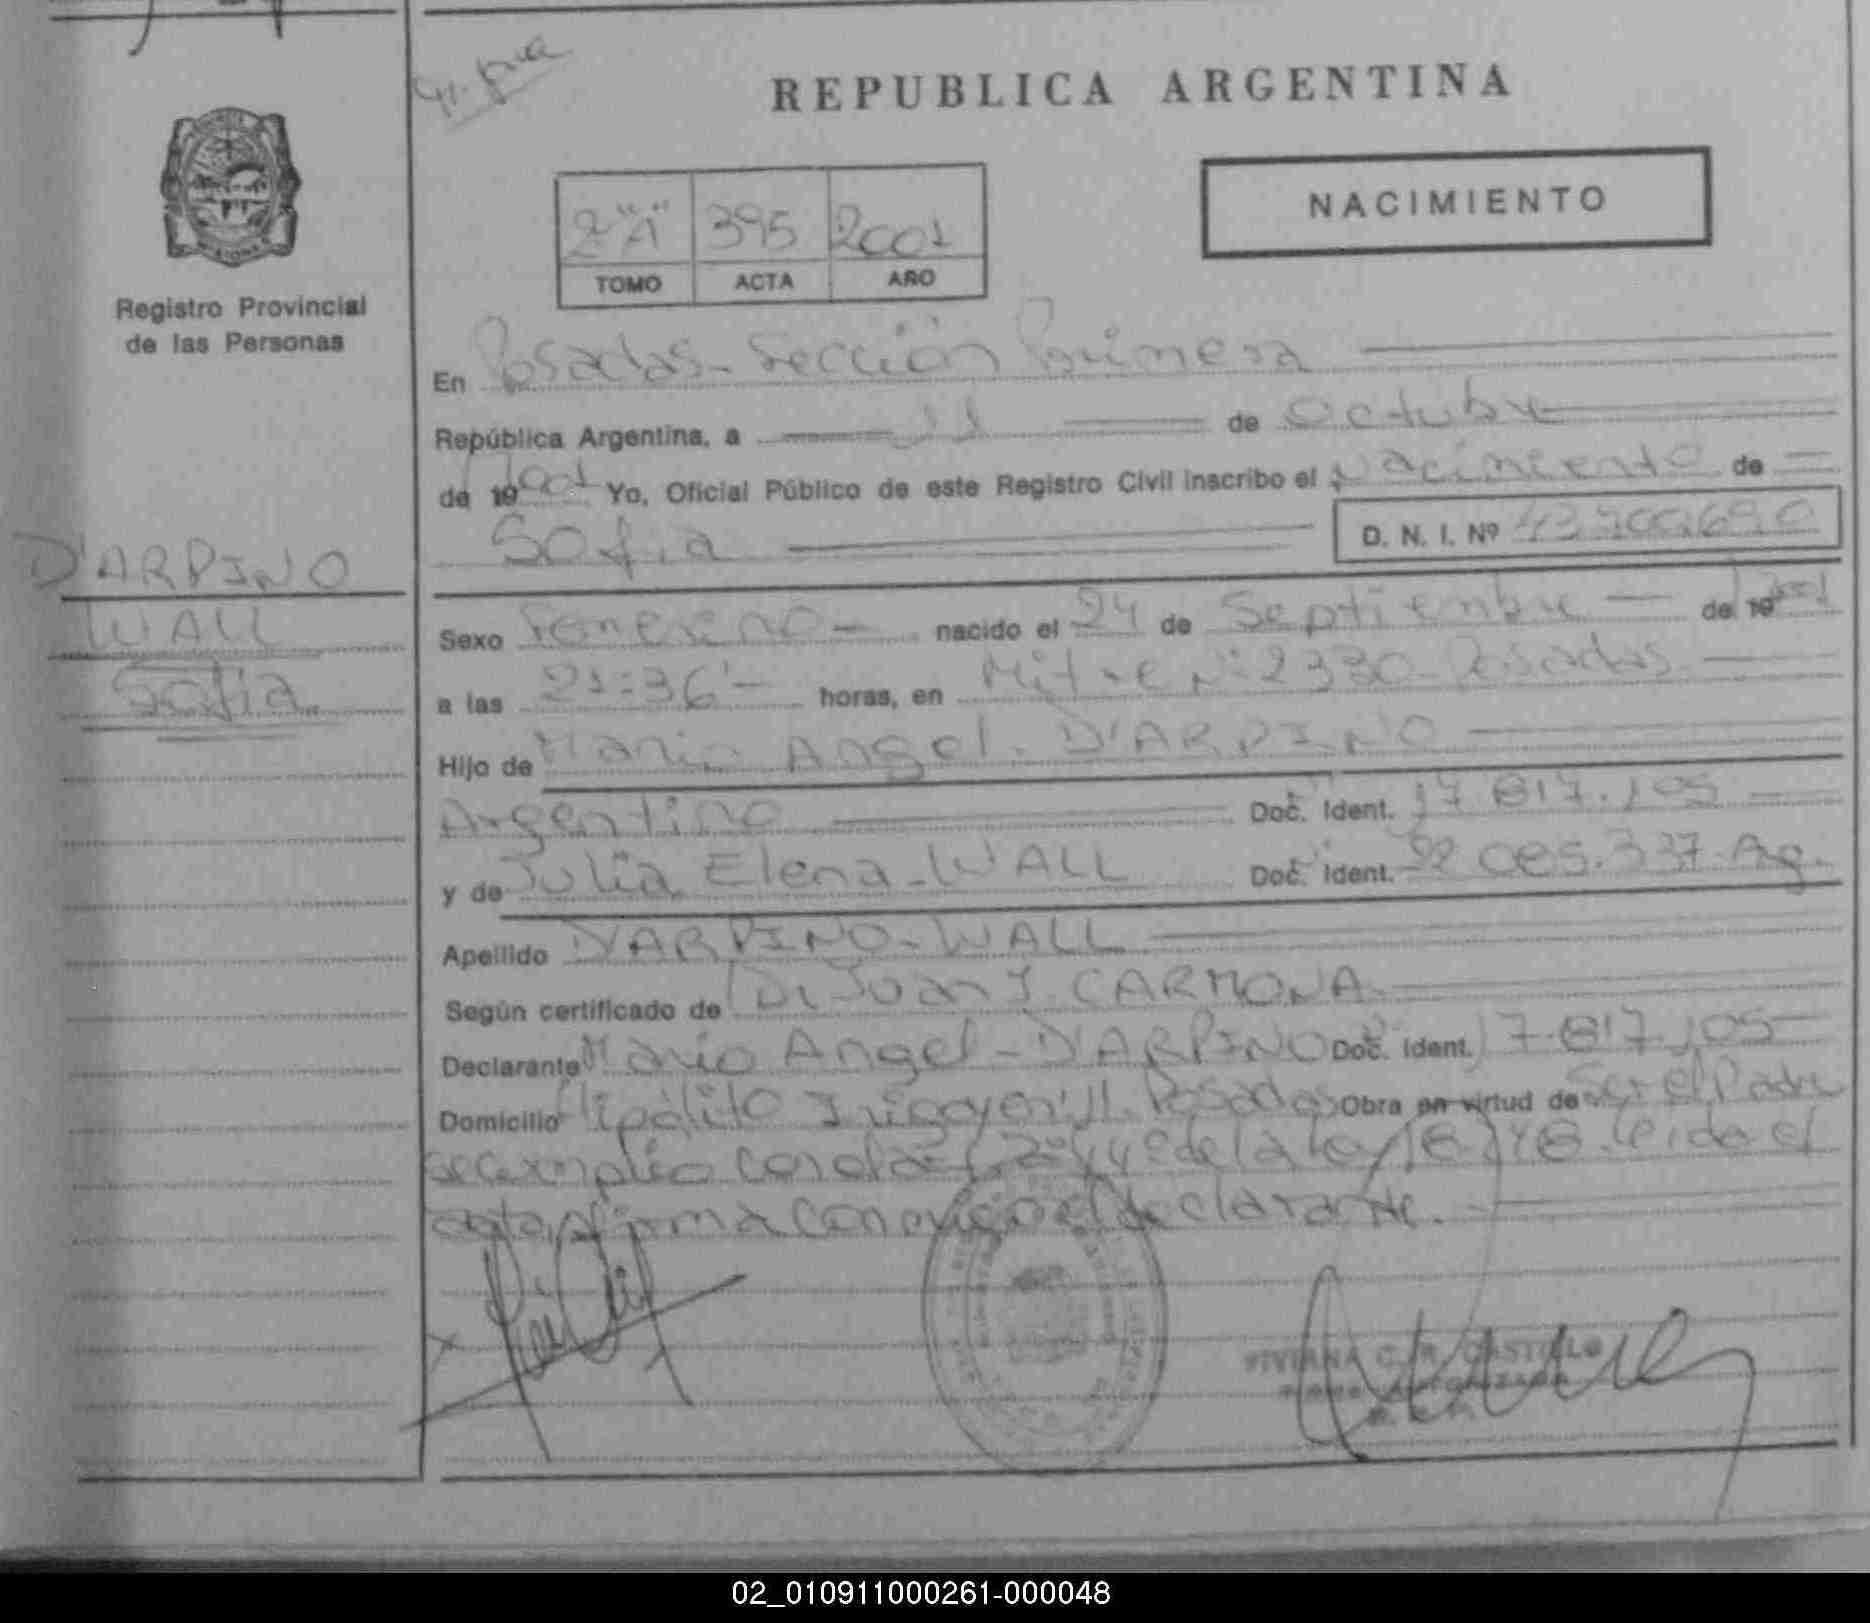 REPUBLICA ARGENTINA
NACIMIENTO
2 "A" 395 2001
TOMO ACTA AÑO
Registro Provincial
de las Personas
En Posadas - Sección Primera
República Argentina, a 11 de Octubre
de 19 2001 Yo, Oficial Público de este Registro Civil inscribo el Nacimiento de
Sofia D. N. I. Nº
D'ARPINO
WALL
Sofia
Sexo Femenino - nacido el 24 de Septiembre de 19 2001
a las 21:36 - horas, en Mitre Nº 2330 - Posadas
Hijo de Mario Angel - D'ARPINO
Argentino Doc. Ident. 17.817.105
y de Julia Elena - WALL Doc. Ident. 22.085.337 - Arg.
Apellido D'ARPINO - WALL
Según certificado de Dr. Juan J. CARMONA
Declarante Mario Angel - D'ARPINO Doc. Ident. 17.817.105
Domicilio Hipólito Posadas Obra en virtud de Ser el Padre
de la ley Leida el
acta, firma conmigo el declarante.
VIVIANA C. R. CASTILLO
02_010911000261-000048